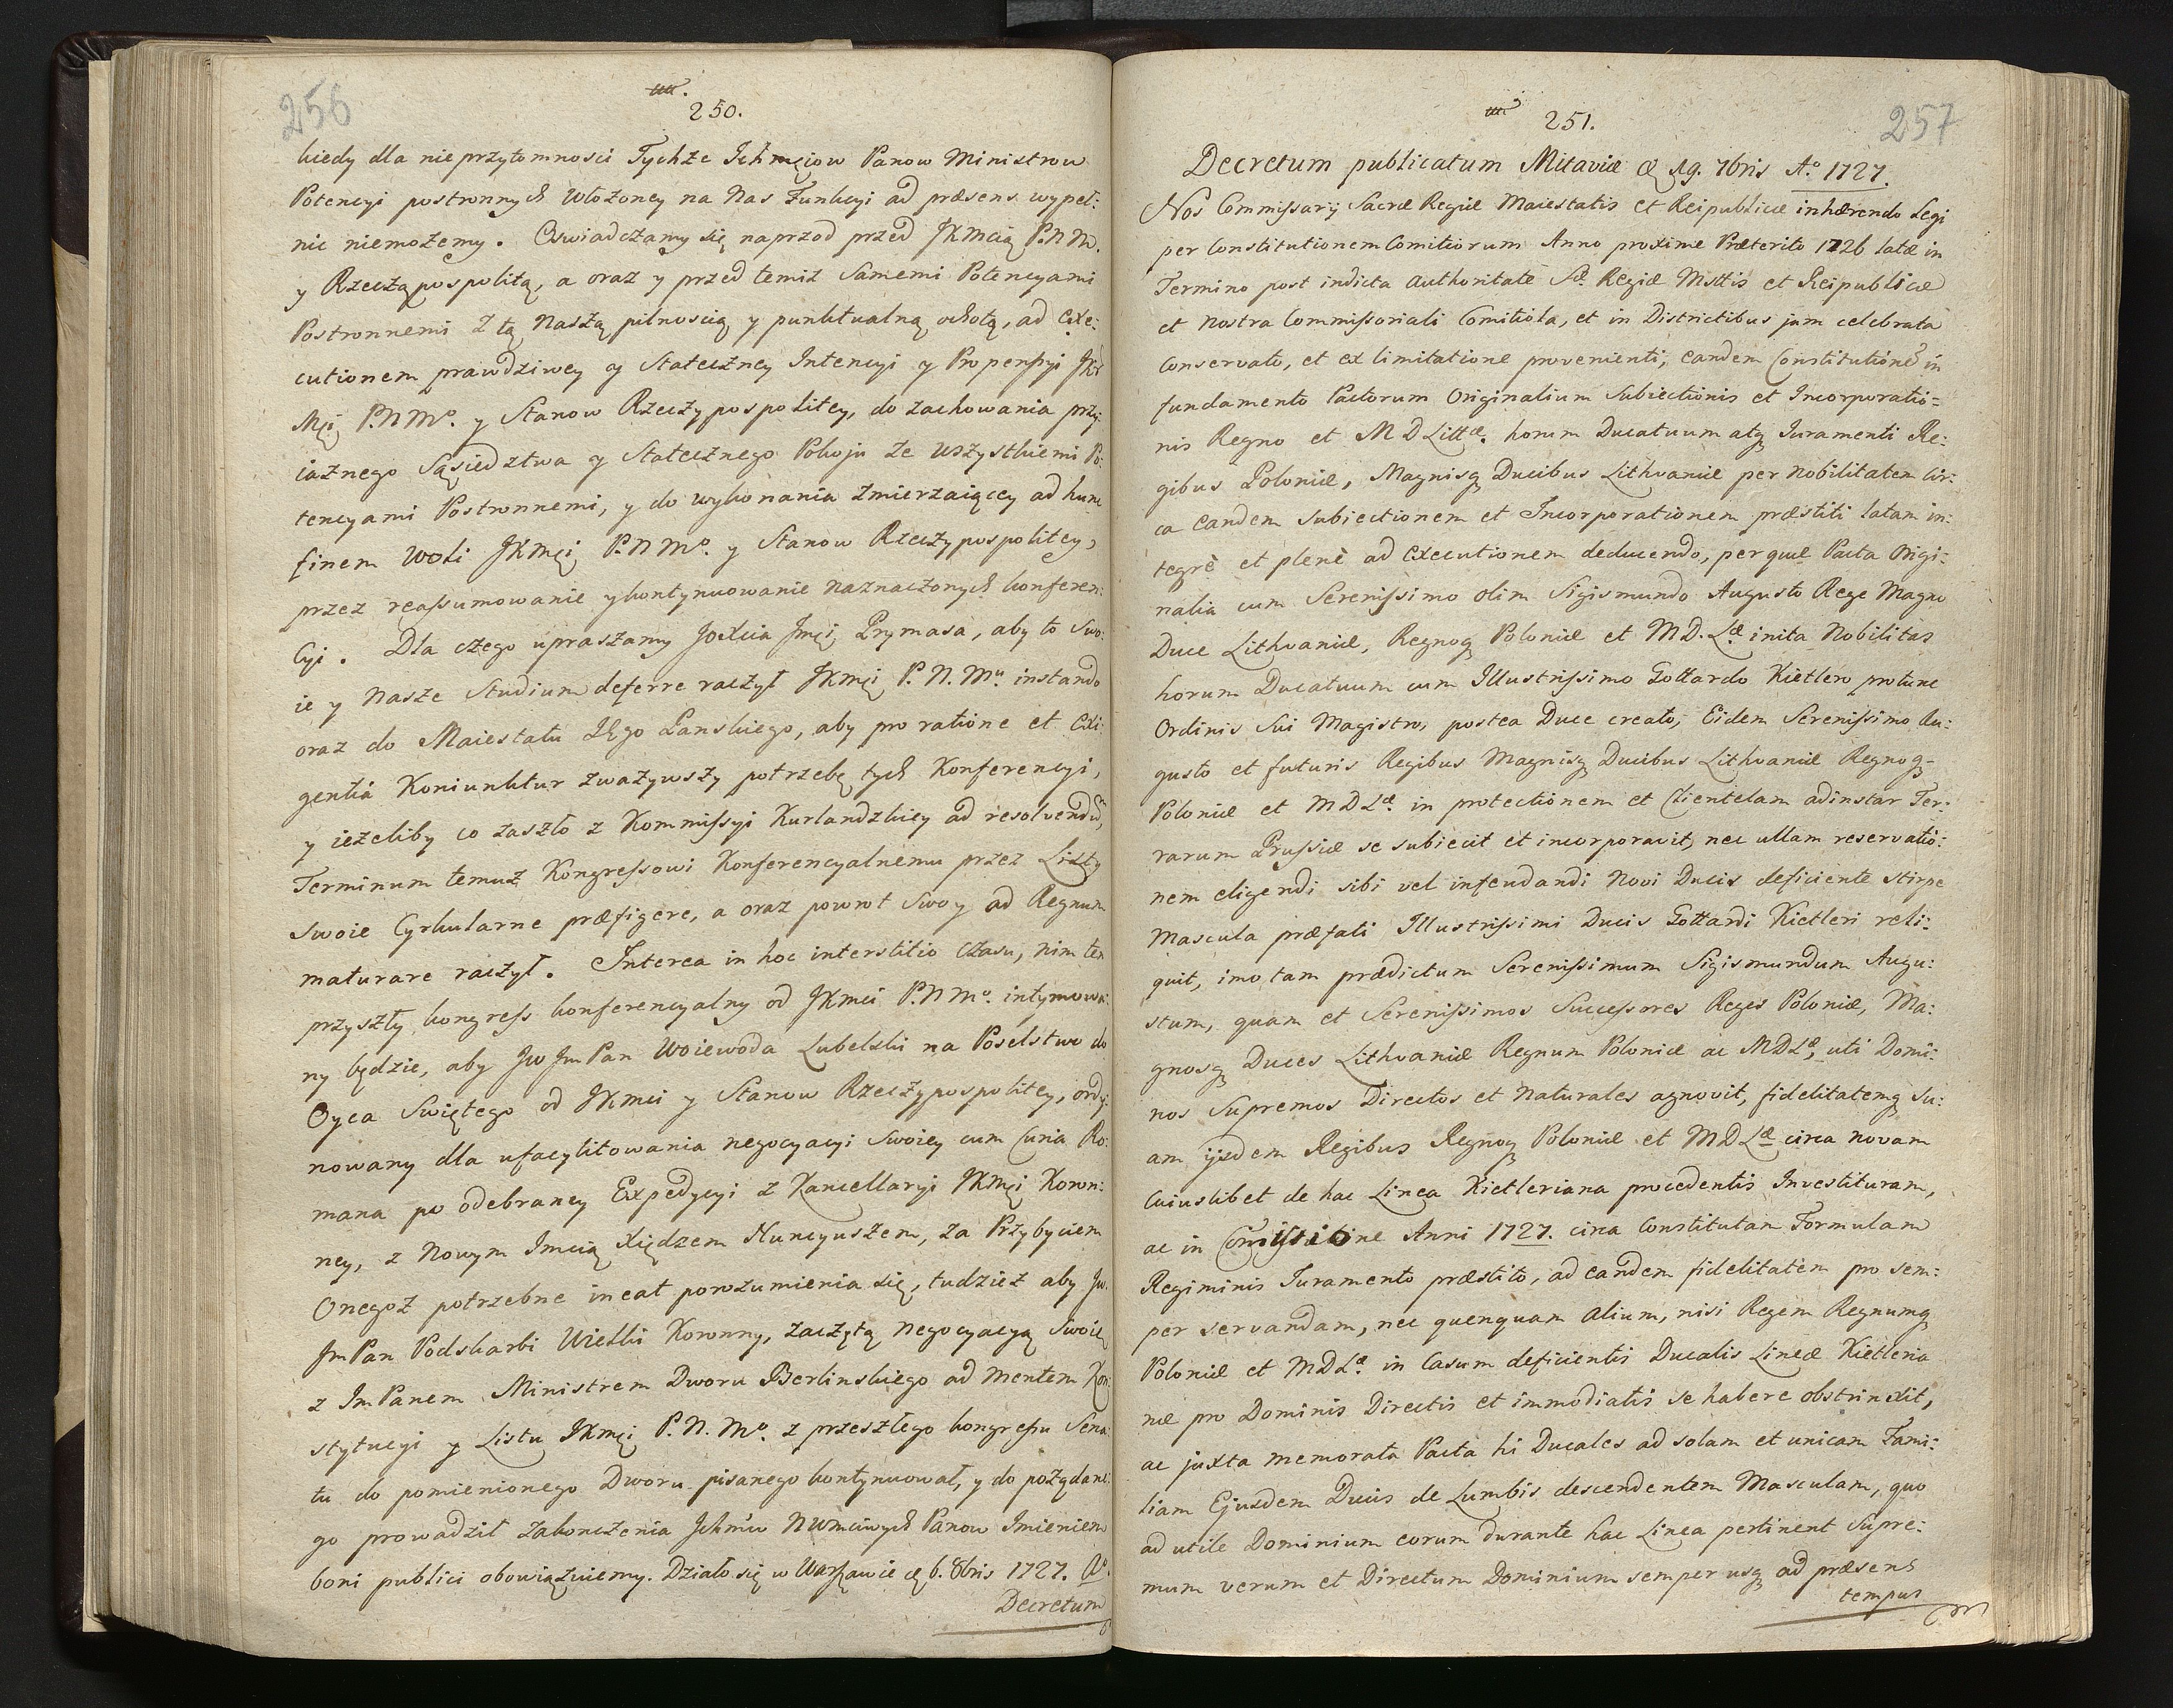 256
250.
kiedy dla nieprzytomnosci Tychże Ichmciow Panow Ministrow
Potencyi postronnych włożoney na Nas Funkcyi ad præsens wypeł:
nic niemożemy. Oswiadczamy się naprzod przed JKMcią P.N.M.
y Rzecząpospolitą, a oraz y przed temiż Samemi Potencyami
Postronnemi z tą Naszą pilnoscią y punktualną ochotą, ad exe:
cutionem prawdziwey y Stateczney Intencyi y Propensyi JK
Mci P.N.Mo. y Stanow Rzeczypospolitey, do zachowania przy:
iaznego Sąsiedztwa y Statecznego Pokoju ze wszystkiemi Po:
tencyami Postronnemi, y do wykonania zmierzaiącey ad hunc
finem Woli JKMci P.N.Mo. y Stanow Rzeczypospolitey,
przez reassumowanie y kontynuowanie naznaczonych konferen:
Cyi. Dla czego upraszamy JoXcia Jmci Prymasa, aby to Swo:
ie y Nasze Studium deferre raczył JKMci P.N.Mu. instando
oraz do Maiestatu JEgo Panskiego, aby pro ratione et exi:
gentia Koniunktur zważywszy potrzebę tych Konferencyi,
y ieżeliby co zaszło z Kommissyi Kurlandzkiey ad resolvendũ,
Terminum temuż Kongressowi Konferencyalnemu przez Listy
Swoie Cyrkularne præfigere, a oraz powrot Swoy ad Regnum
maturare raczył. Interea in hoc interstitio czasu, nim ten
przyszły kongress konferencyalny od JKMci P.N.Mo. intymowa:
ny będzie, aby JW JmPan Woiewoda Lubelski na Poselstwo do
Oyca Swiętego od JKMci y Stanow Rzeczypospolitey, ordy:
nowany dla ufacylitowania negocyacyi Swoiey cum Curia Ro:
mana po odebraney Expedycyi z Kancellaryi JKMci Koron:
ney, z Nowym Imcią Xiędzem Nuncyuszem, za Przybyciem
Onegoż potrzebne ineat porozumienia się, tudzież aby JW.
JmPan Podskarbi Wielki Koronny, zaczętą negocyacyą Swoię
z ImPanem Ministrem Dworu Berlinskiego ad mentem Kon:
stytucyi y Listu JKMci P.N.Mo. z przeszłego kongressu Sena:
tu do pomienionego Dworu pisanego kontynuował, y do pożądane:
go prowadził zakonczenia Ichmciow Panow Imieniem
boni publici obowiązuiemy. Działo się w Warszawie d 6. 8bris 1727. Ao.
Decretum

257
251.
Decretum publicatum Mitaviæ d 19. 7bris Ao. 1727.
Nos Commissarij Sacræ Regiæ Maiestatis et Reipublicæ inhærendo Legi
per Constitutionem Comitiorum Anno proxime Præterito 1726 latæ in
Termino post indicta authoritate Sæ. Regiæ Mttis et Reipublicæ
et nostra Commissoriali Comitiola, et in Districtibus jam celebrata
conservato, et ex limitatione provenienti, eandem Constitutionẽ in
fundamento Pactorum Originalium Subiectionis et Incorporatio=
nis Regno et M D Littæ. horum Ducatuum atq Iuramenti Re:
gibus Poloniæ, Magnisq Ducibus Lithvaniæ per Nobilitatem cir:
ca eandem Subiectionem et Incorporationem præstiti latam in:
tegrè et plenè ad executionem deducendo, per quæ Pacta Origi:
nalia cum Serenissimo olim Sigismundo Augusto Rege Magno
Duce Lithvaniæ, Regnoq Poloniæ et M D. Læ inita Nobilitas
horum Ducatuum cum Illustrissimo Gottardo Kietlero protunc
Ordinis Sui Magistro, postea Duce creato, Eidem Serenissimo Au:
gusto et futuris Regibus Magnisq Ducibus Lithvaniæ Regnoq-
Poloniæ et M D Læ. in protectionem et Clientelam adinstar Ter:
rarum Prussiæ se subiecit et incorporavit, nec ullam reservatio:
nem eligendi sibi vel infeudandi Novi Ducis deficiente stirpe
Mascula præfati Illustrissimi Ducis Gottardi Kietleri reli:
quit, imo tam prædictum Serenissimum Sigismundum Augu:
stum, quam et Serenissimos Successores Reges Poloniæ, Ma:
gnosq Duces Lithvaniæ Regnum Poloniæ ac MDLæ, uti Domi:
nos Supremos Directos et Naturales agnovit, fidelitatemq Su:
am ijsdem Regibus Regnoq Poloniæ et M D Læ circa novam
Cuiuslibet de hac Linea Kietleriana procedentis Investituram,
ac in Comissione Anni 1727. circa Constitutam Formulam
Regiminis Iuramento præstito, ad eandem fidelitatem pro sem:
per servandam, nec quenquam alium, nisi Regem Regnumq
Poloniæ et M D Læ. in Casum deficientis Ducalis Lineæ Kietleria
næ pro Dominis Directis et immediatis se habere obstrinxit,
ac juxta memorata Pacta hi Ducales ad solam et unicam Fami:
liam Ejusdem Ducis de Lumbis descendentem Masculam, quo
ad utile Dominium eorum durante hac Linea pertinent Supre:
mum verum et Directum Dominium semper usq ad præsens
tempus